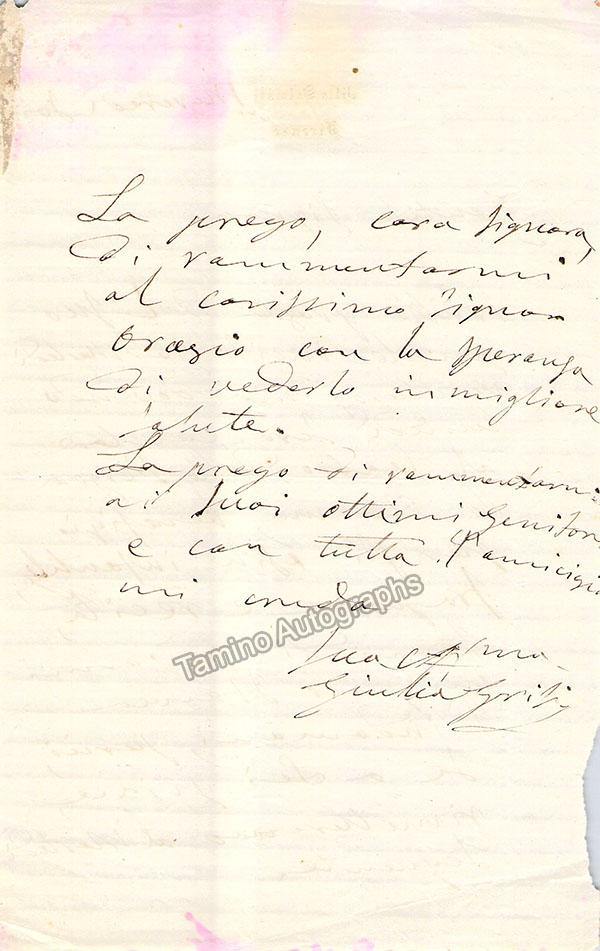 La prego, cara Signora,
di rammentarmi
al carissimo Signor
Orazio con la speranza
di vederlo in migliore
salute.
La prego di rammentarmi
ai suoi ottimi Genitori
e con tutta l'amicizia
mi creda
Sua Aff.ma
Giulia Grisi
Tamino Autographs